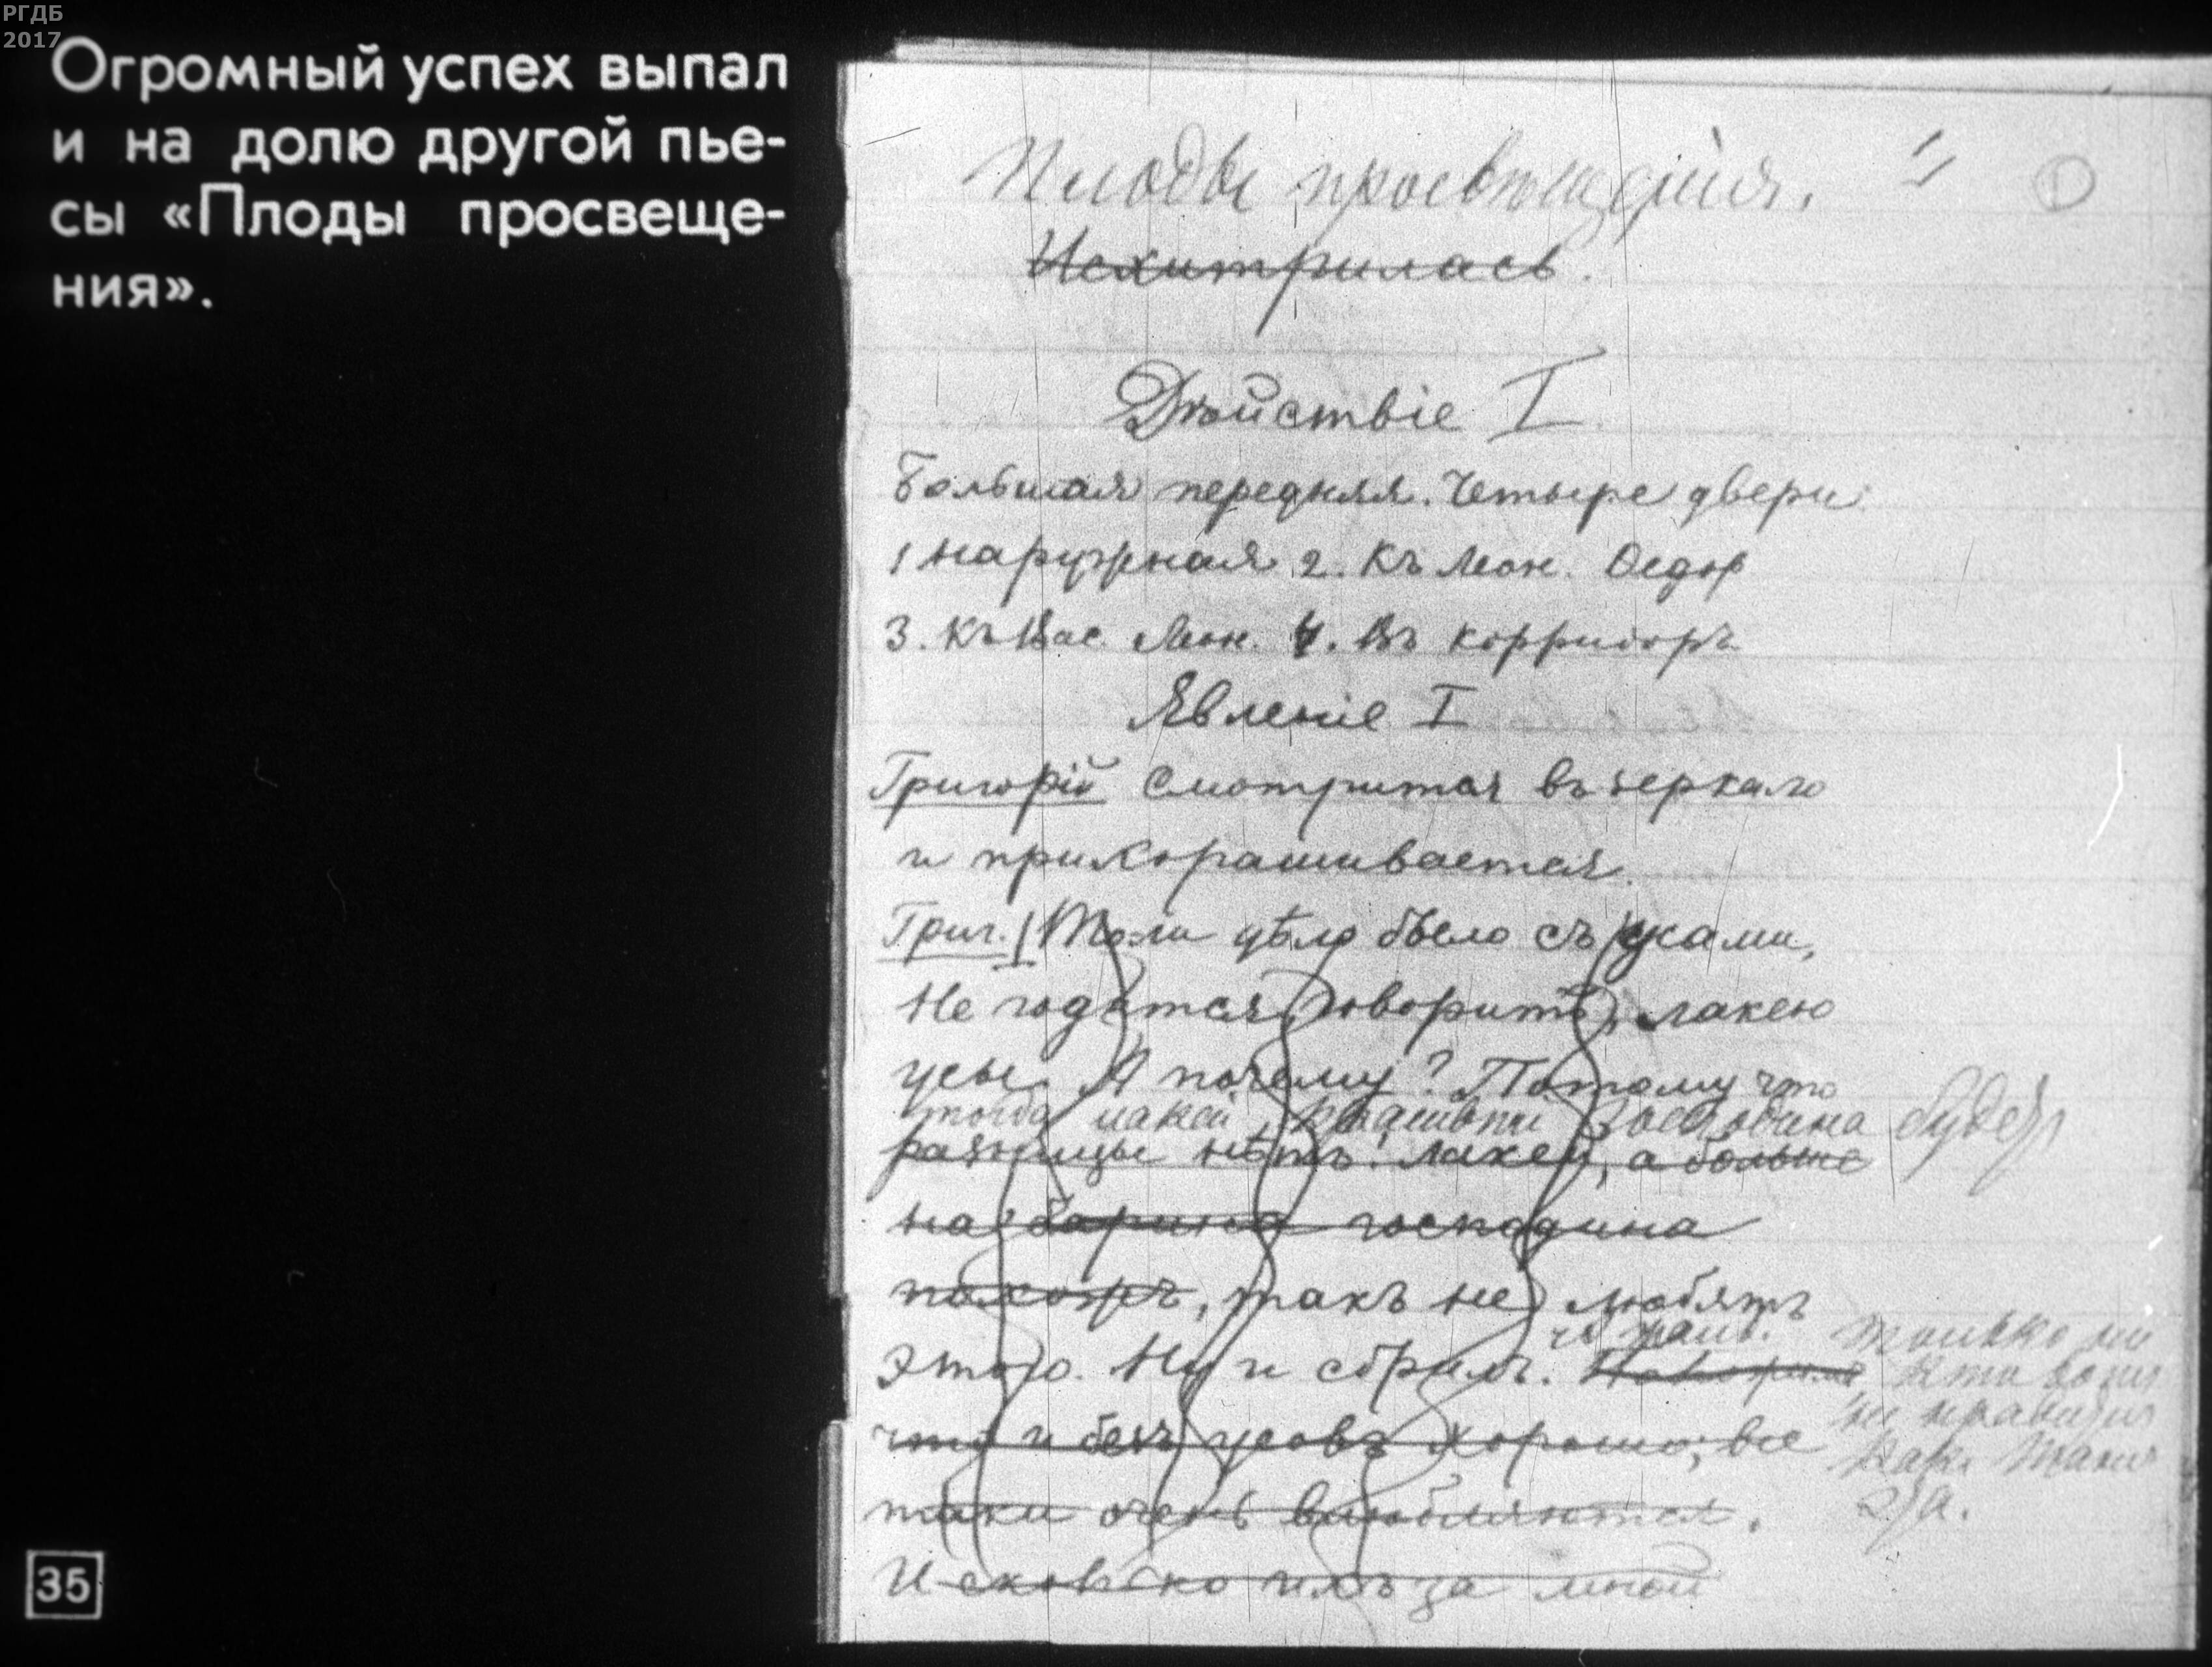 РГДБ
2017
Огромный успех выпал
и на долю другой пье-
сы «Плоды просвеще-
ния».
35
Плоды просвѣщенія.
Исхитрилась.
Дѣйствіе I
Большая передняя. Четыре двери
1 наружная 2. Къ Леон. Ѳедор
3. Къ Вас. Леон. 4. Въ корридоръ
Явленіе I
Григорій Смотрится въ зеркало
и прихорашивается.
Григ. То ли дѣло было съ усами,
Не годятся, говоритъ, лакею
усы. А почему? Потому что
тогда лакей господина будетъ
разницы нѣтъ. Лакей, а больше
на барина господина
похожъ, такъ не любятъ
этого. Ну и сбрилъ.
только
что и безъ усовъ хорошо; все
какъ Таня
таки очень влюбляются.
И сколько ихъ за мной